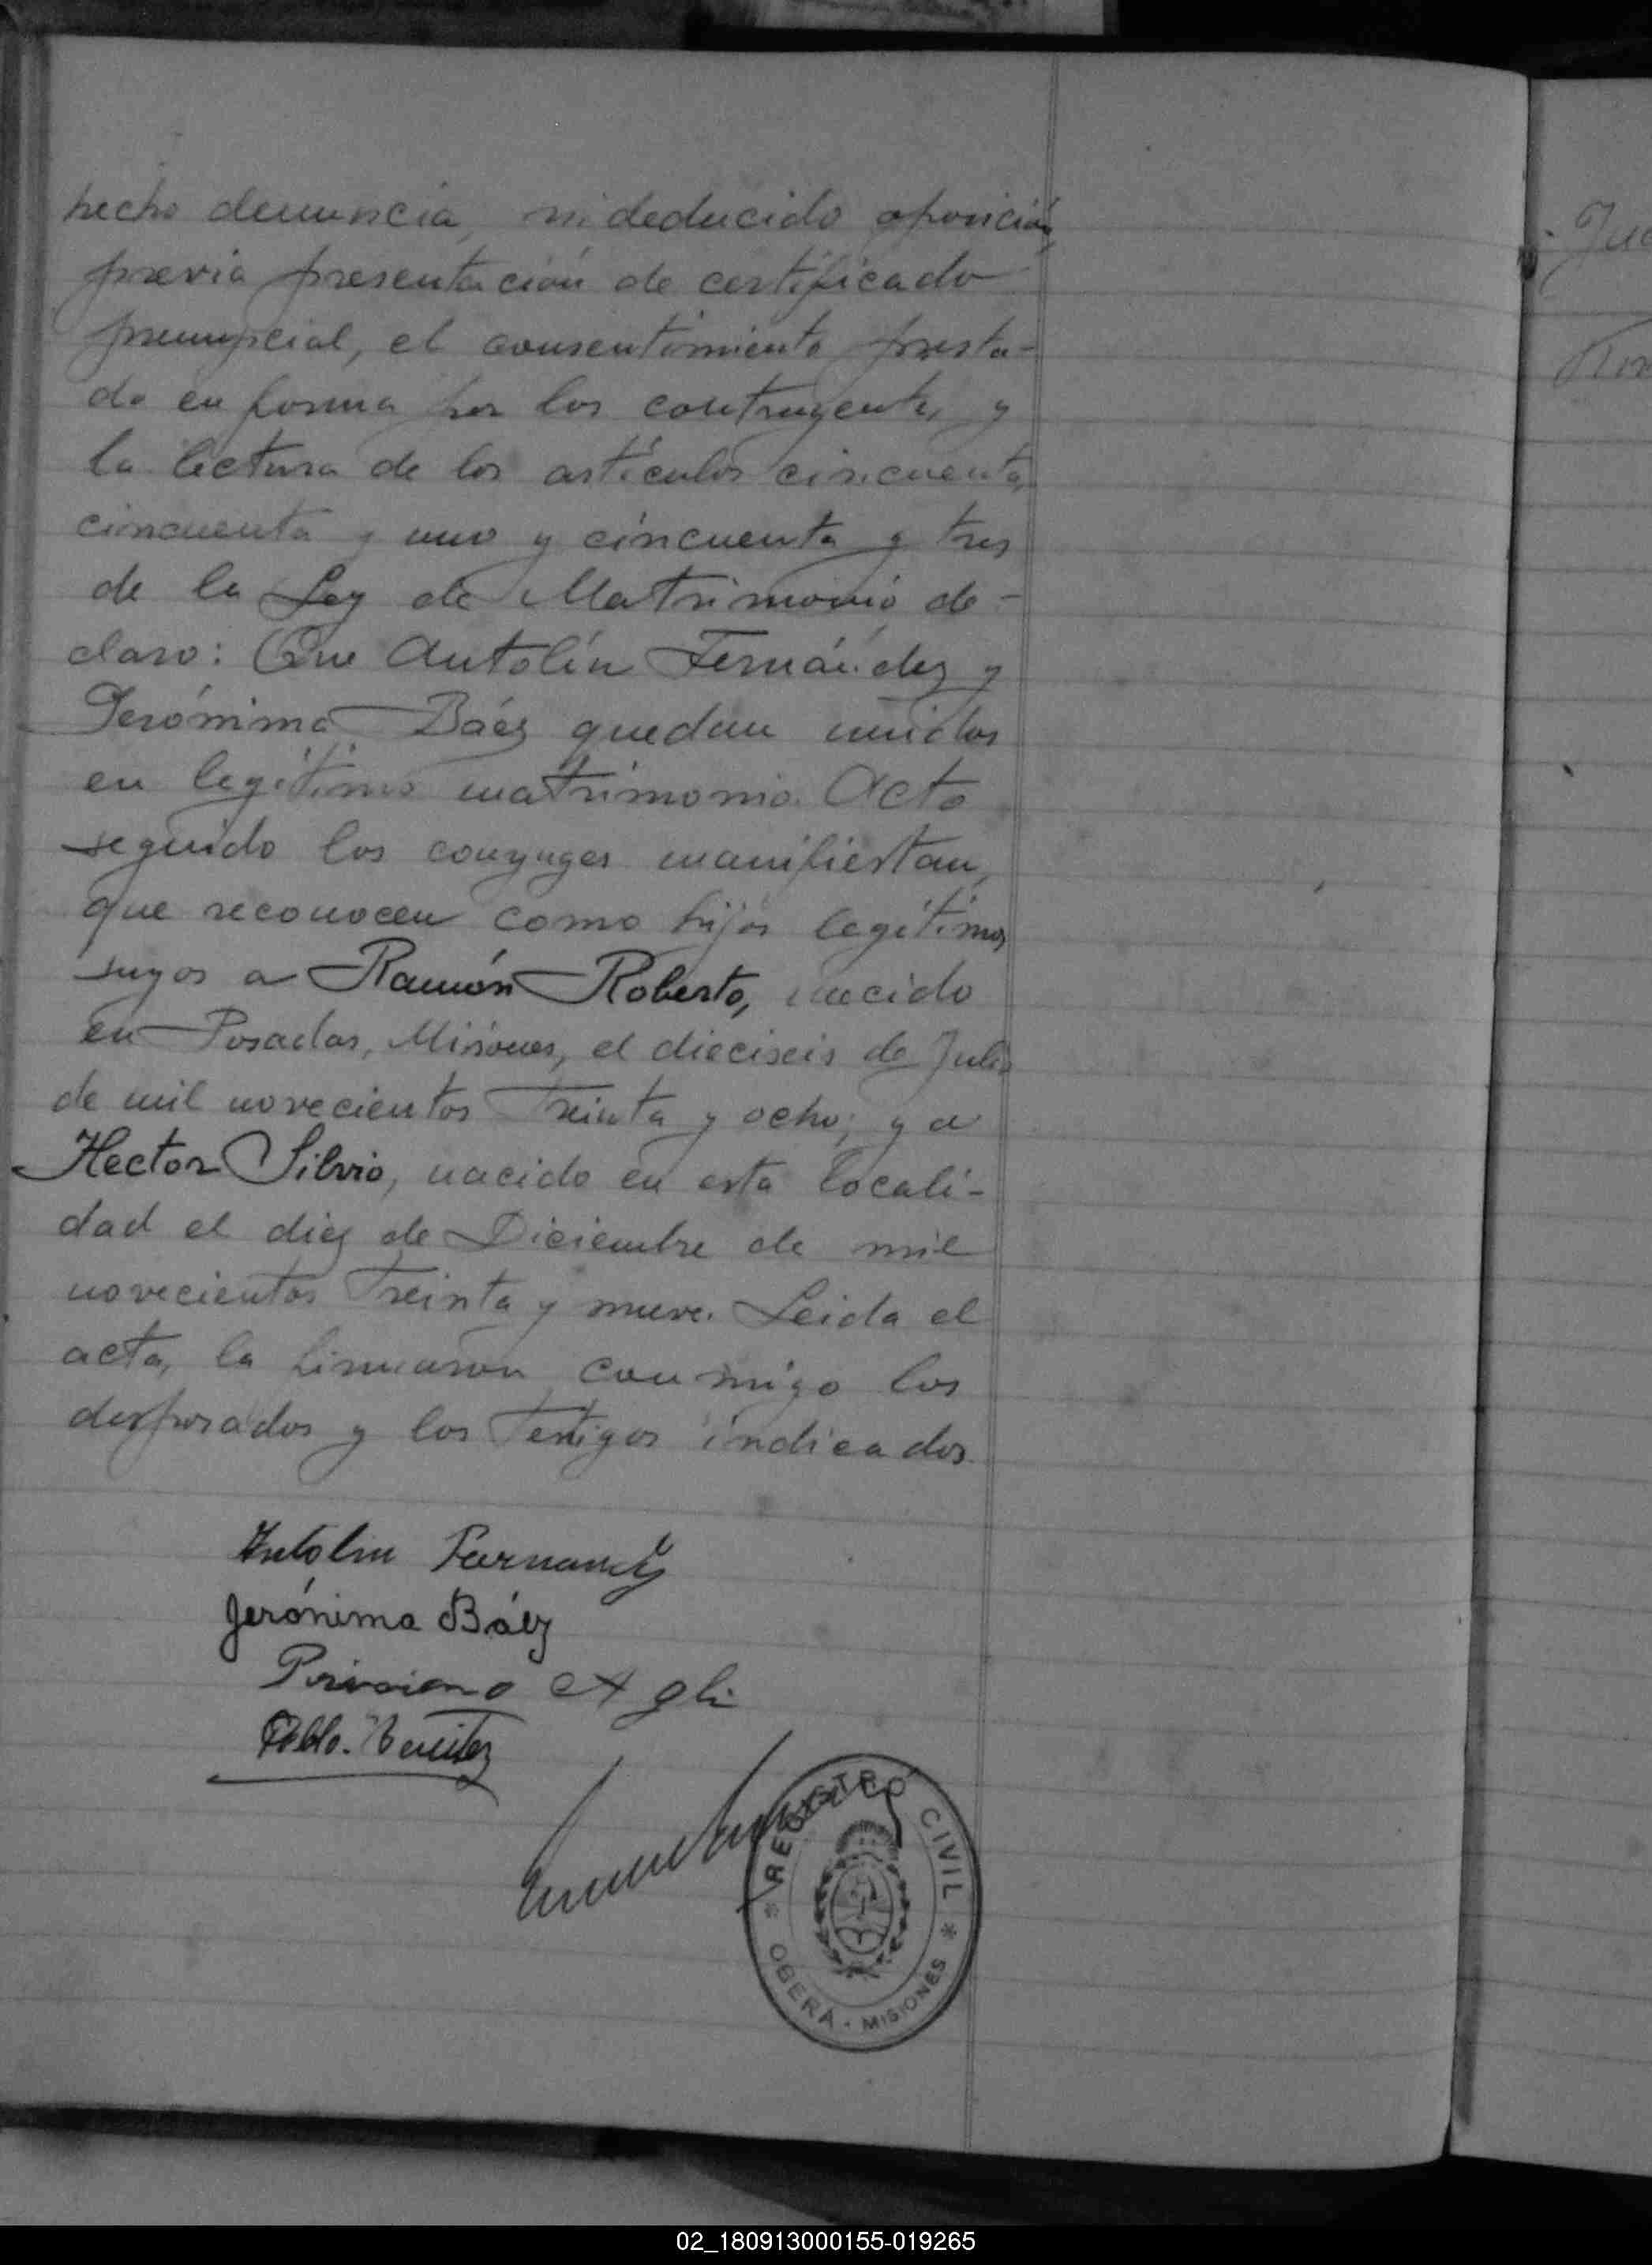 hecho denuncia, ni deducido oposición,
previa presentación de certificado
prenupcial, el consentimiento presta-
do en forma por los contrayentes, y
la lectura de los artículos cincuenta,
cincuenta y uno y cincuenta y tres
de la Ley de Matrimonio, de-
claro: Que Antolín Fernández y
Jerónima Báez quedan unidos
en legítimo matrimonio. Acto
seguido los conyuges manifiestan,
que reconocen como hijos legítimos
suyos a Ramón Roberto, nacido
en Posadas, Misiones, el dieciseis de Julio
de mil novecientos treinta y ocho; y a
Hector Silvio, nacido en esta locali-
dad el diez de Diciembre de mil
novecientos treinta y nueve. Leida el
acta, la firmaron conmigo los
desposados y los testigos indicados.
Antolin Fernandez
Jerónima Báez
Pablo. Benitez
REGISTRO CIVIL
OBERÁ - MISIONES
02_180913000155-019265